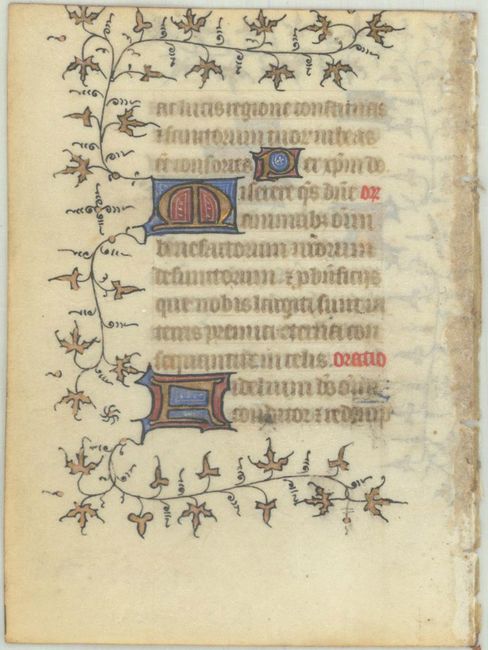 ac lucis regione constituas
⁊ sanctorum tuor̄ iubeas
eē consortes P er xp̄m do
Miserere q̄s dn̄e or̄
animab; om̄
benefactorum nr̄orum
defunctorum ⁊ p
que nobis largiti sunt in
terris premia eterna con
sequantur in celis oratio
Fidelium ds̄
conditor ⁊ redemp